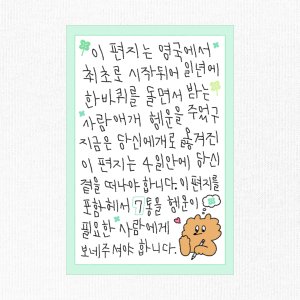 이 편지는 영국에서
최초로 시작되어 일년에
한바퀴를 돌면서 받는
사람에게 행운을 주었구
지금은 당신에게로 옮겨진
이 편지는 4일안에 당신
곁을 떠나야 합니다. 이 편지를
포함해서 7통을 행운이
필요한 사람에게
보내주셔야 합니다.